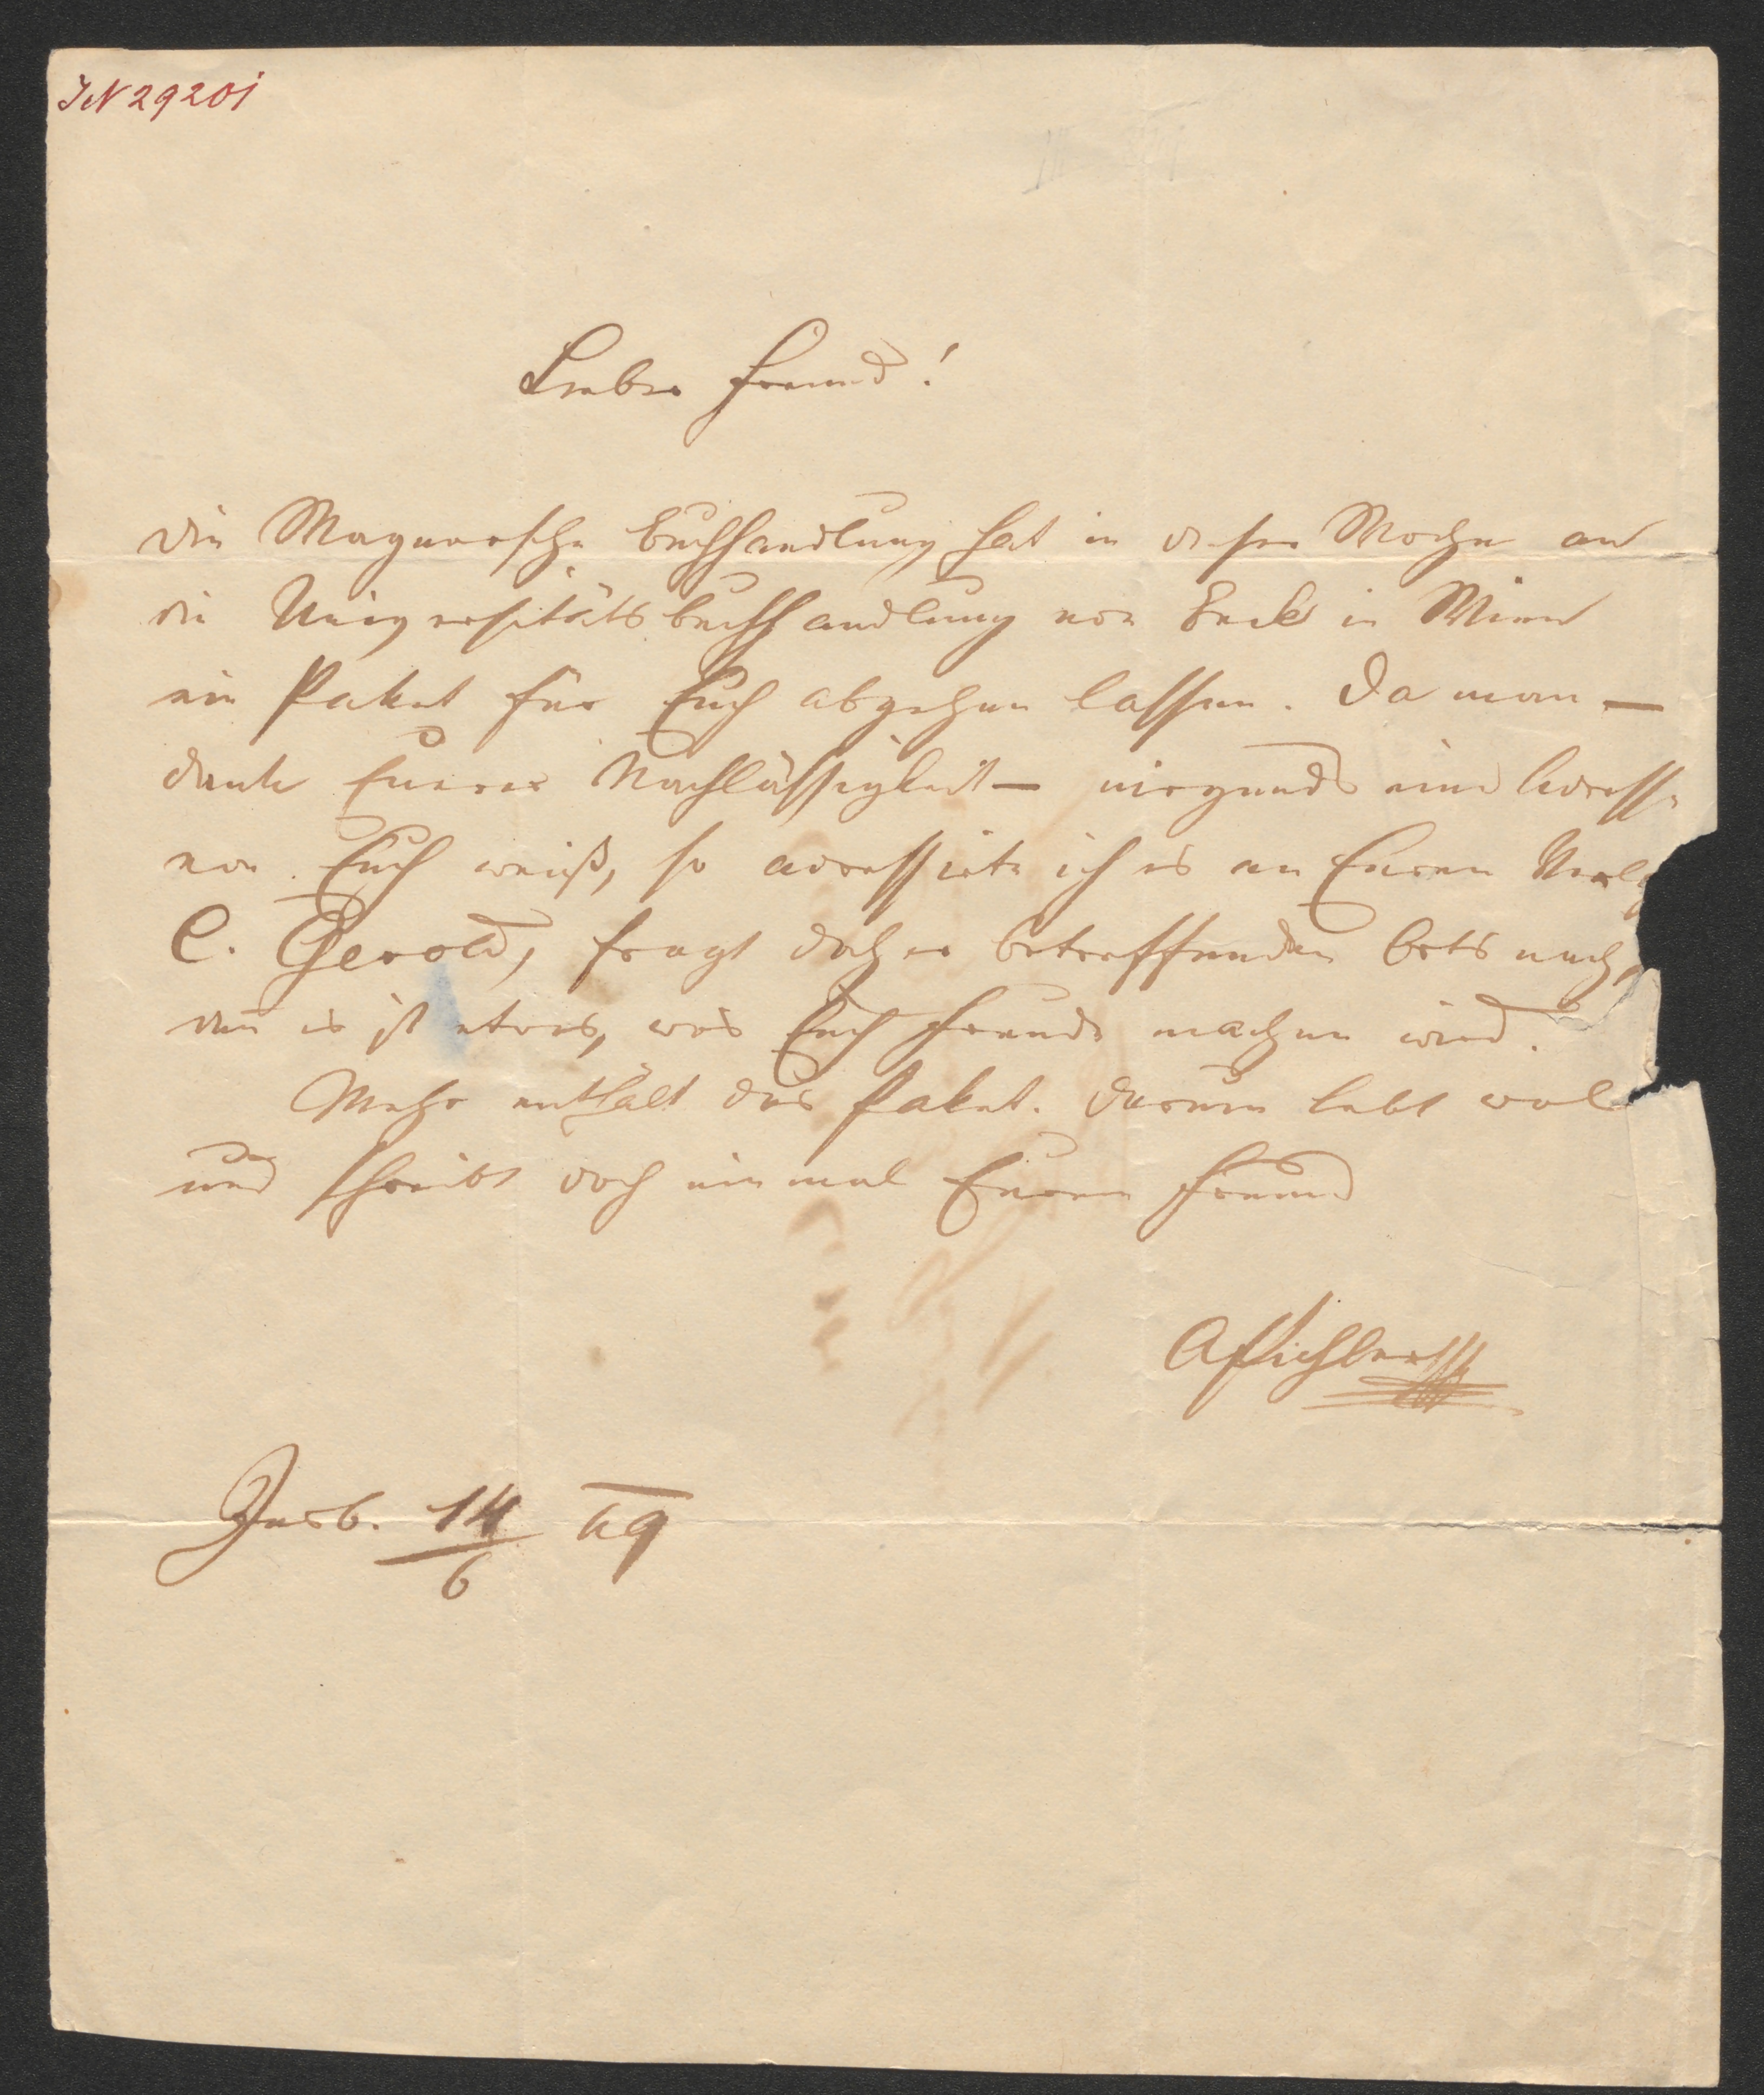 IN 29201
Lieber Freund!
Die Wagnersche Buchhandlung hat in dieser Woche an
die Universitätsbuchhandlung von Beck in Wien
ein Paket für Euch abgehen lassen. Da man —
dank Euerer Nachlässigkeit — nirgends eine Adresse
von Euch weiß, so adressirte ich es an Euren
C. Gerold, fragt daher betreffenden Orts nach,
den̄ es ist etwas, was Euch Freude machen wird.
Mehr enthält das Paket. Darum lebt wol
und schreibt doch einmal Euren Freund
APichler
Insb. 14/6 49